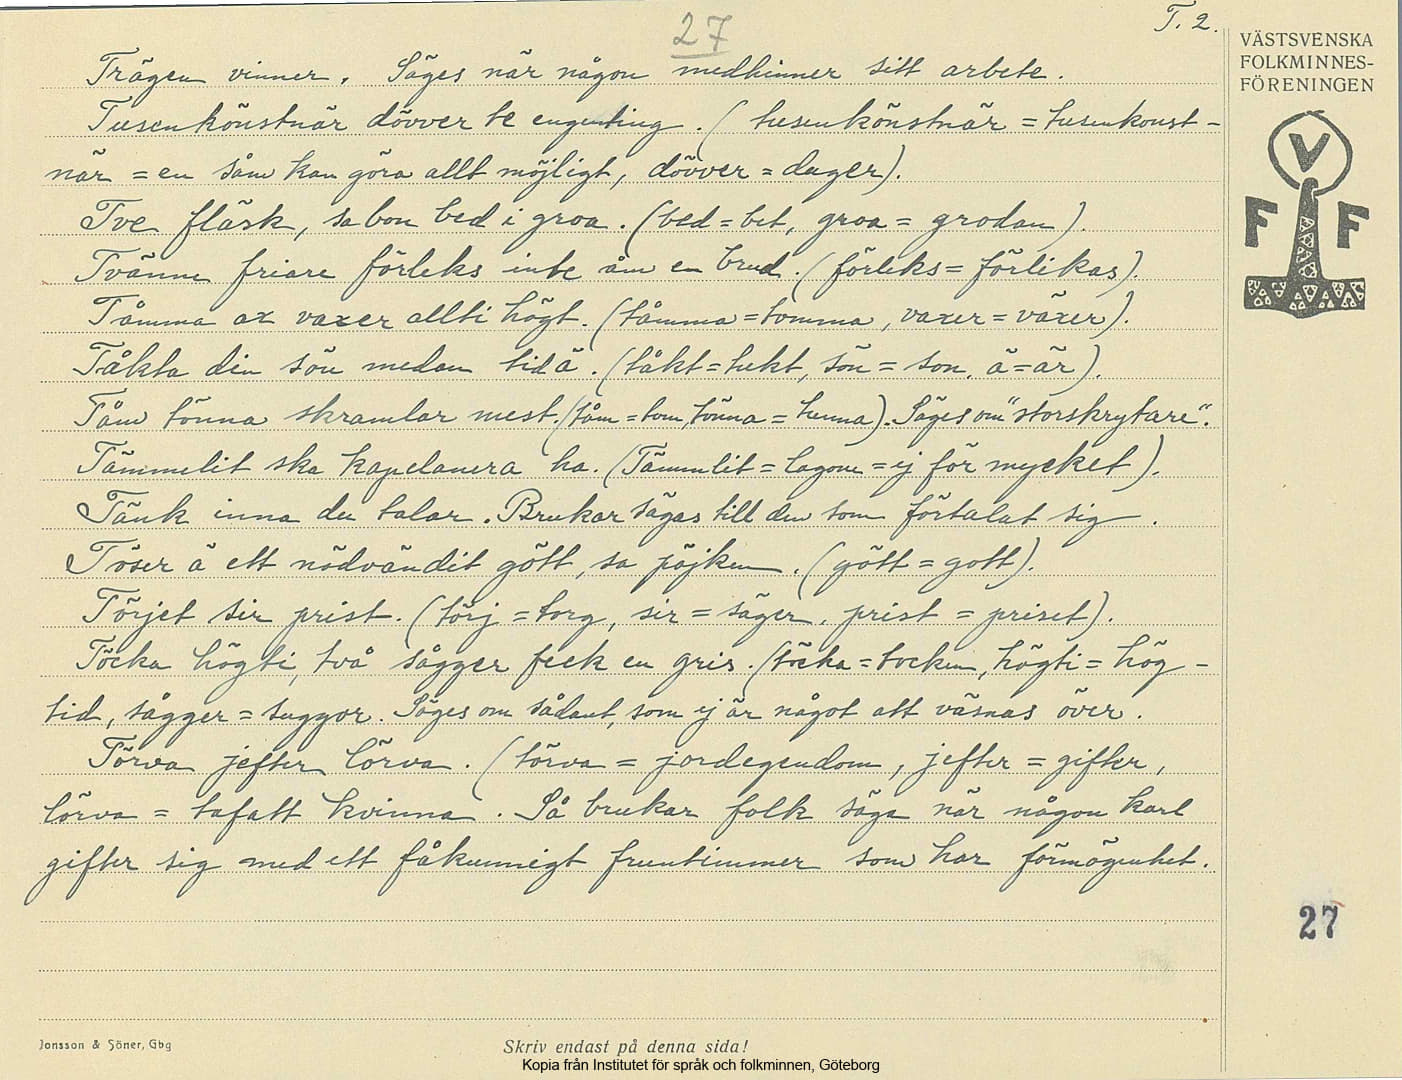 27
T. 2.
VÄSTSVENSKA
FOLKMINNES-
FÖRENINGEN
V
F F
Trägen vinner. Säges när någon medhinner sitt arbete.
Tusenkönstnär dövver te engenting. (tusenkönstnär = tusenkonst-
när = en såm kan göra allt möjligt, dövver = duger).
Tve fläsk, sa bon bed i groa. (bed = bet, groa = grodan).
Tvänne friare förleks inte åm en brud. (förleks = förlikas).
Tåmma ax vaxer allti högt. (tåmma = tomma, vaxer = växer).
Tåkta din sön medan tid ä. (tåkt = tukt, sön = son, ä = är).
Tåm tönna skramlar mest. (tåm = tom, tönna = tunna). Säges om "storskrytare".
Tämmelit ska kapelanera ha. (Tämmlit = lagom = ej för mycket).
Tänk inna du talar. Brukar sägas till den som förtalat sig.
Töser ä ett nödvändit gött, sa pöjken. (gött = gott).
Törjet sir prist. (törj = torg, sir = säger, prist = priset).
Töcka högti, två sågger feck en gris. (töcka = tocken, högti = hög-
tid, sågger = suggor. Säges om sådant, som ej är något att väsnas över.
Törva jefter lörva. (törva = jordegendom, jefter = gifter,
lörva = tafatt kvinna. Så brukar folk säga när någon karl
gifter sig med ett fåkunnigt fruntimmer som har förmögenhet.
27
Jonsson & Söner, Gbg
Skriv endast på denna sida!
Kopia från Institutet för språk och folkminnen, Göteborg